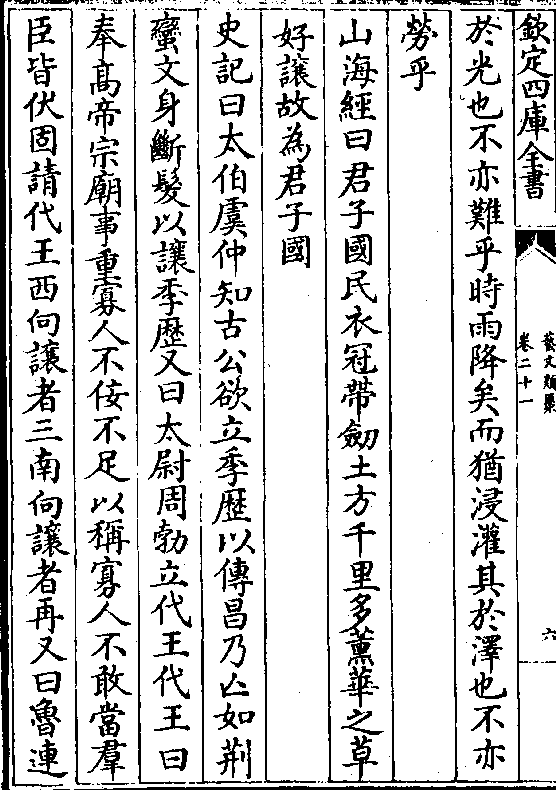 欽定四庫全書
藝文類聚
卷二十一
六
於光也不亦難乎時雨降矣而猶浸灌其於澤也不亦
勞乎
山海經曰君子國民衣冠帶劒土方千里多薰華之草
好讓故為君子國
史記曰太伯虞仲知古公欲立季歷以傳昌乃亡如荆
蠻文身斷髮以讓季歷又曰太尉周勃立代王代王曰
奉髙帝宗廟事重寡人不佞不足以稱寡人不敢當羣
臣皆伏固請代王西向讓者三南向讓者再又曰魯連